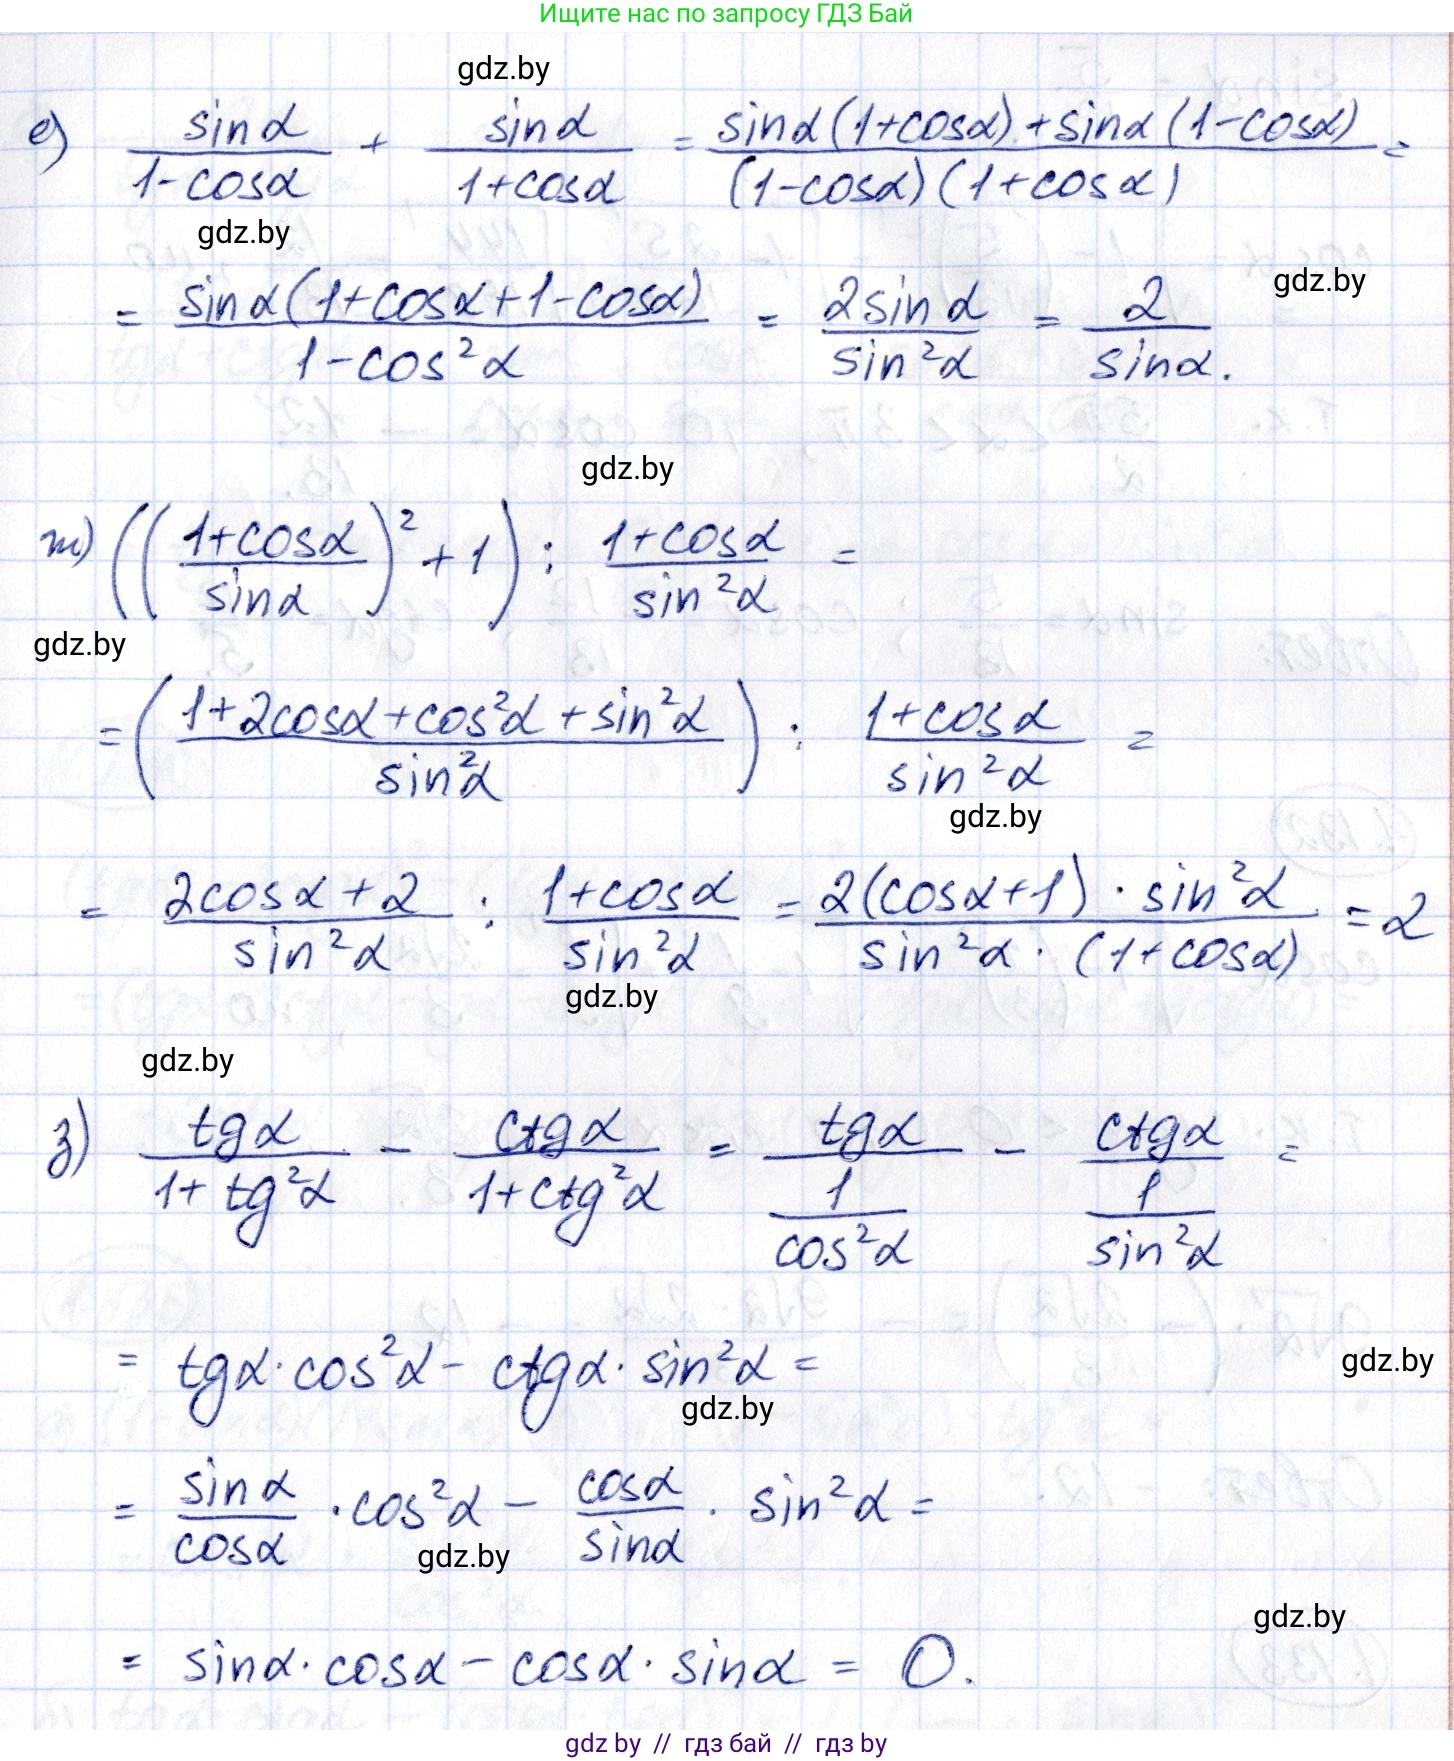 Ищите нас по запросу ГДЗ Бай
gdz.by
е) sinα/(1-cosα) + sinα/(1+cosα) = (sinα(1+cosα)+sinα(1-cosα))/((1-cosα)(1+cosα)) =
gdz.by
gdz.by
= sinα(1+cosα+1-cosα)/(1-cos²α) = 2sinα/sin²α = 2/sinα.
gdz.by
ж) (((1+cosα)/sinα)² + 1) : (1+cosα)/sin²α =
gdz.by
= ((1+2cosα+cos²α+sin²α)/sin²α) : (1+cosα)/sin²α =
gdz.by
= (2cosα+2)/sin²α : (1+cosα)/sin²α = (2(cosα+1)·sin²α)/(sin²α·(1+cosα)) = 2
gdz.by
gdz.by
з) tgα/(1+tg²α) - ctgα/(1+ctg²α) = tgα/(1/cos²α) - ctgα/(1/sin²α) =
= tgα·cos²α - ctgα·sin²α =
gdz.by
gdz.by
= sinα/cosα ·cos²α - cosα/sinα · sin²α =
gdz.by
gdz.by
= sinα·cosα - cosα·sinα = 0.
gdz by // гдз бай // гдз by